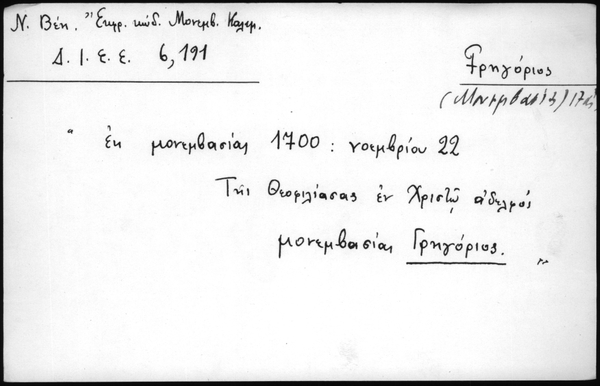 Ν. Βέη. "Ἔκφρ. κώδ. Μονεμβ. Καλαμ.
Δ. Ι. Ε. Ε. 6, 191
Γρηγόριος
(Μονεμβασίας) 17
"ἐκ μονεμβασίας 1700 : νοεμβρίου 22
Τῆς Θεοφιλίας σας ἐν Χριστῷ ἀδελφός
μονεμβασίας Γρηγόριος. "